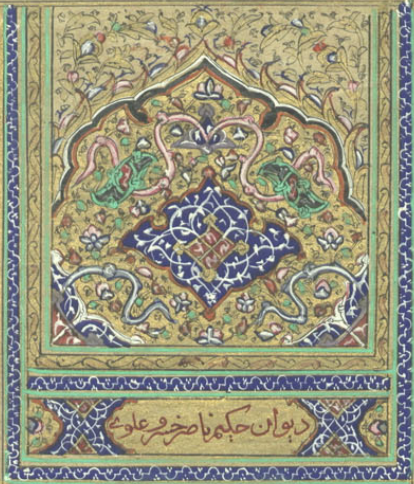 دیوان حکیم ناصر خسرو علوی